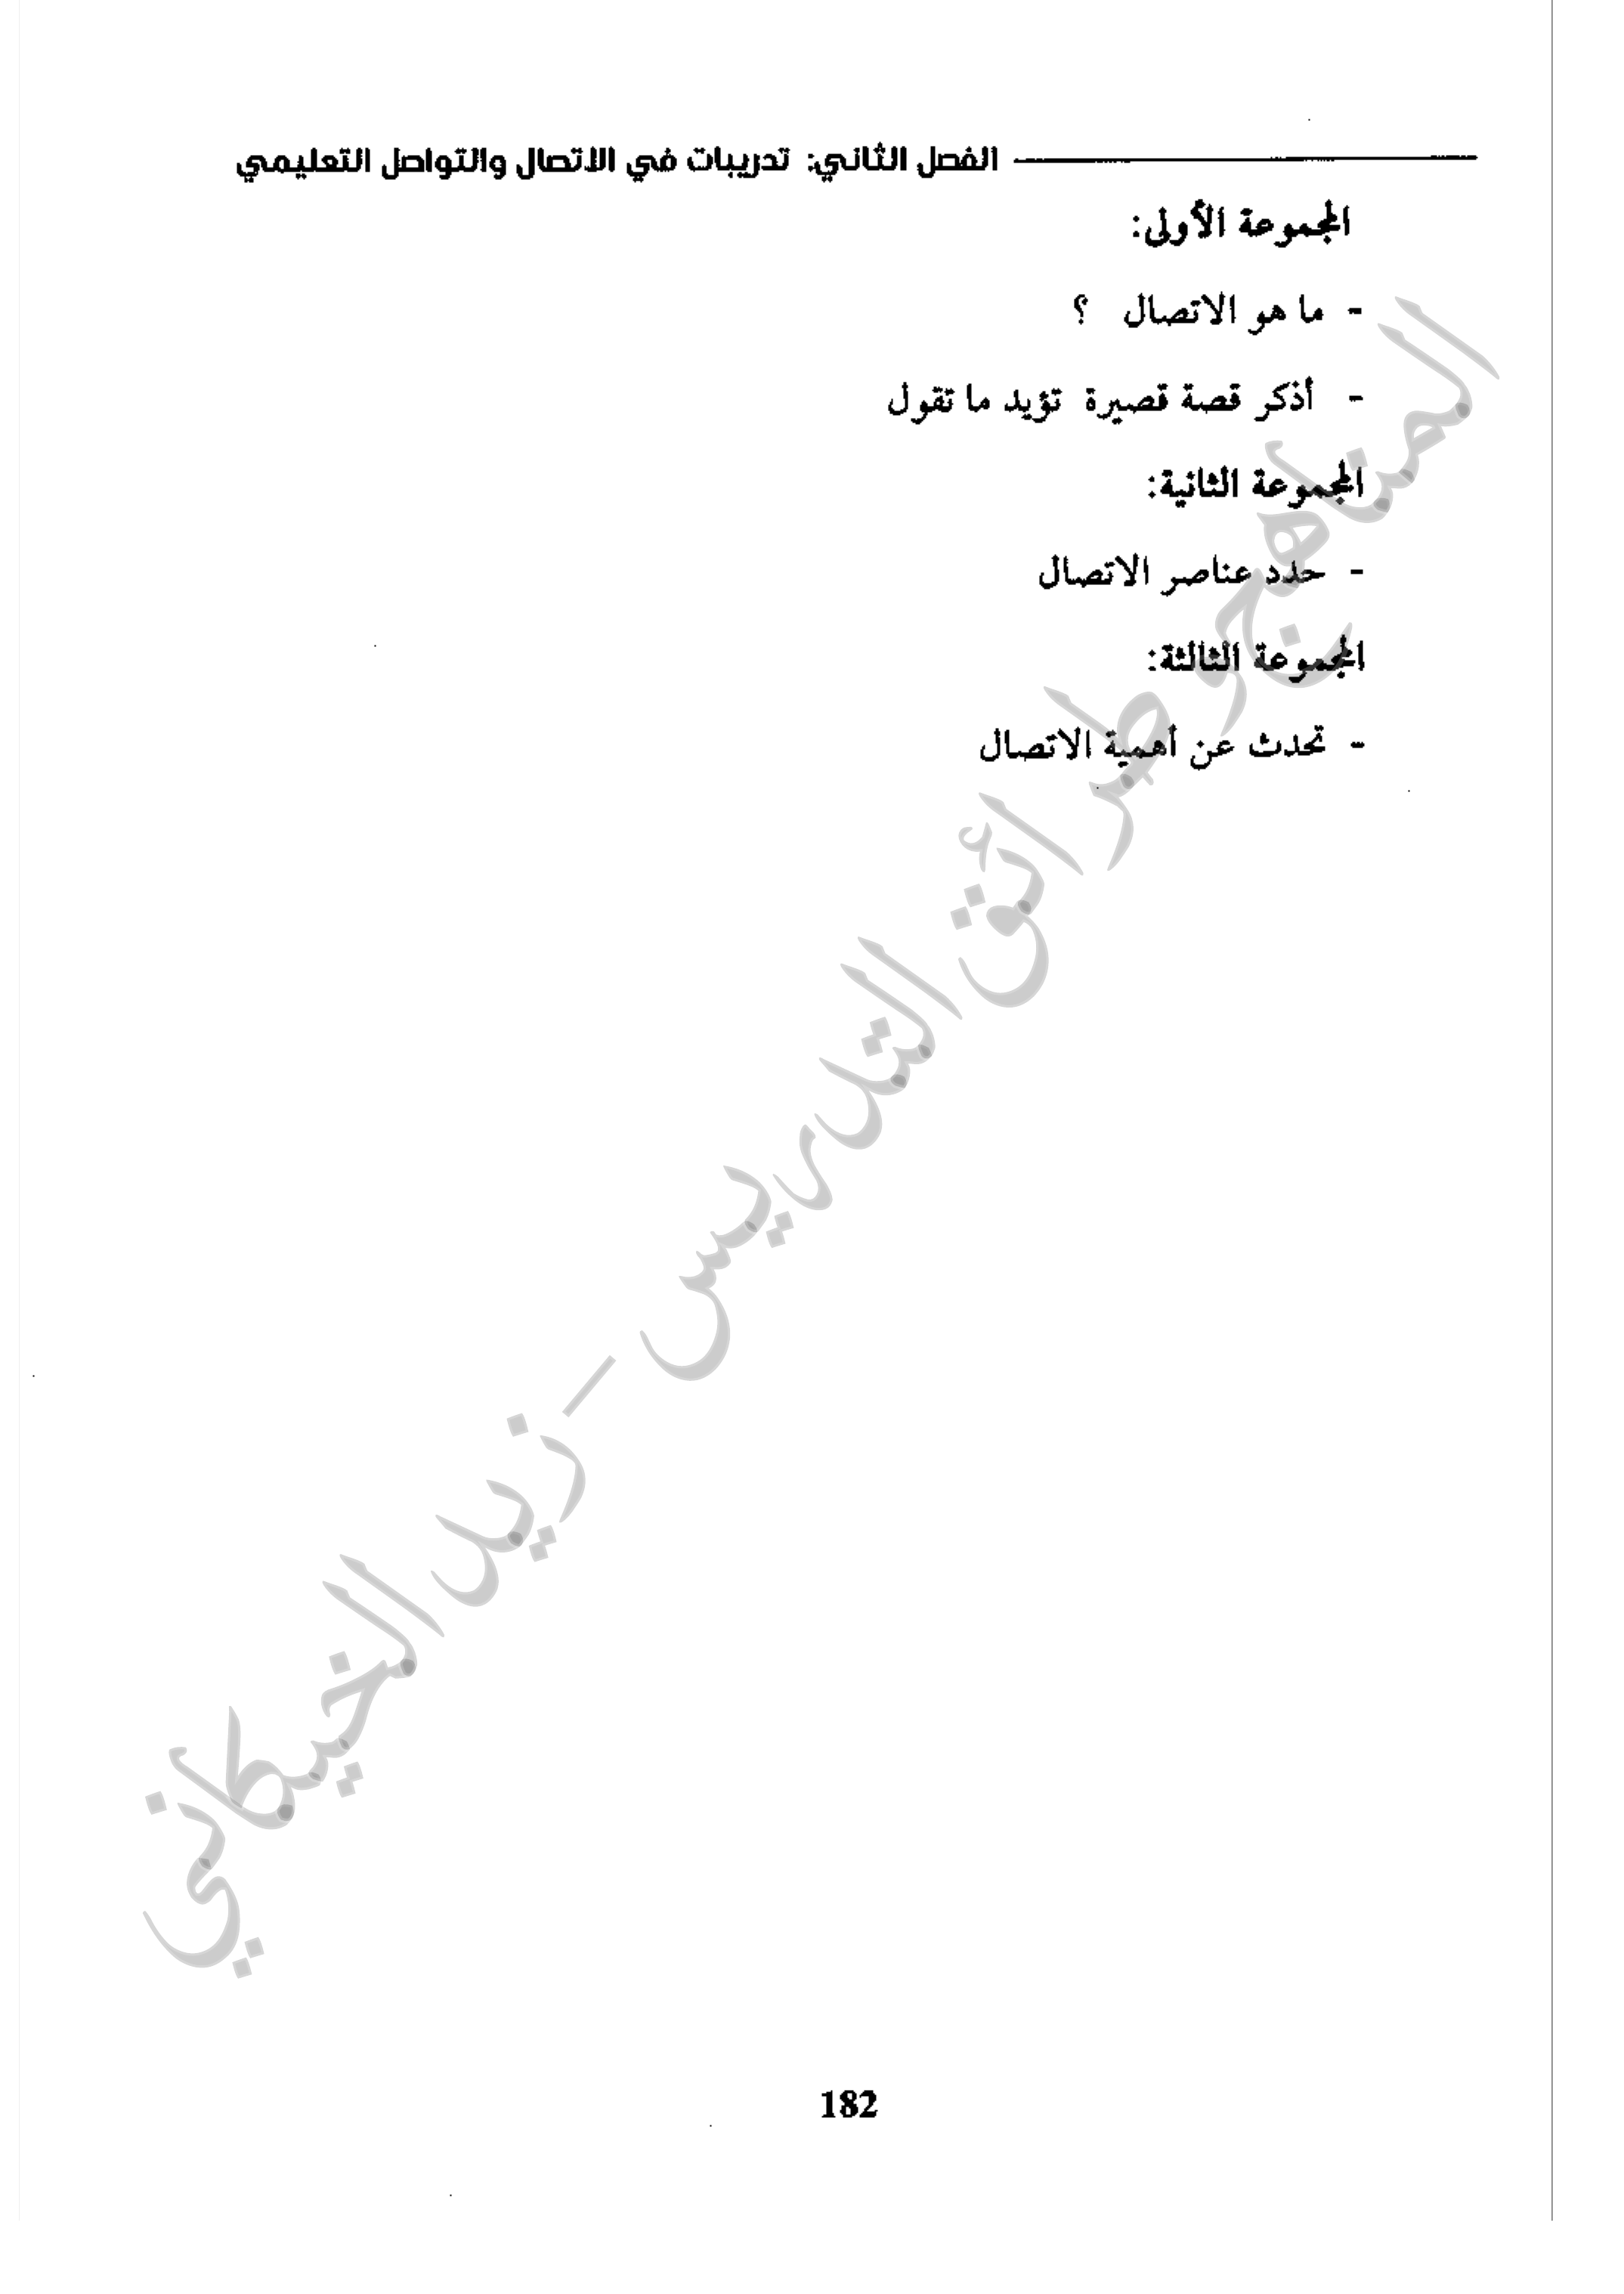 الفصل الثاني: تدريبات في الاتصال والتواصل التعليمي
المجموعة الأولى:
- ما هو الاتصال ؟
- أذكر قصة قصيرة تؤيد ما تقول
المجموعة الثانية:
- حدد عناصر الاتصال
المجموعة الثالثة:
- تحدث عن أهمية الاتصال
المناهج وطرائق التدريس - زيد الخيكاني
182